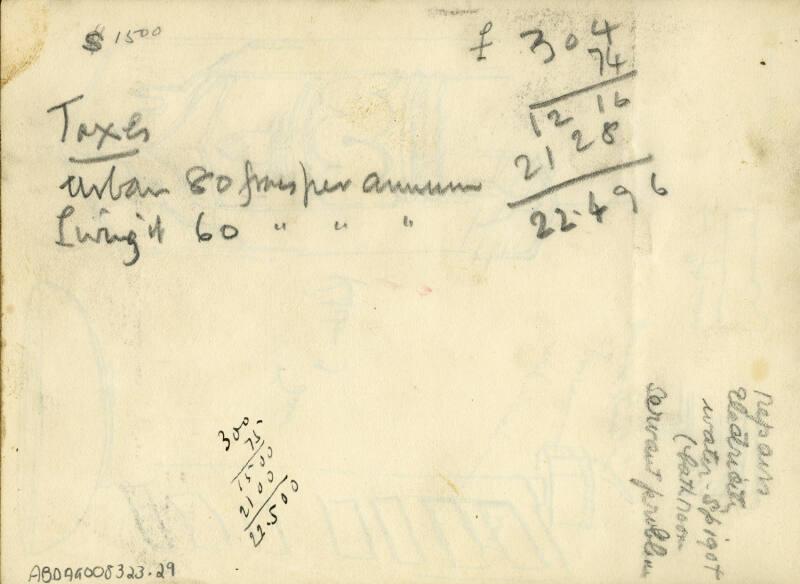 $ 1500
£ 304
74
12 16
21 28
22.496
Taxes
urban 80 frcs per annum
Living it 60 " " "
300
75
1500
2100
22.500
Repairs
Electricity
water-spigot
(bathroom
servant problem
ABDAG008323.29